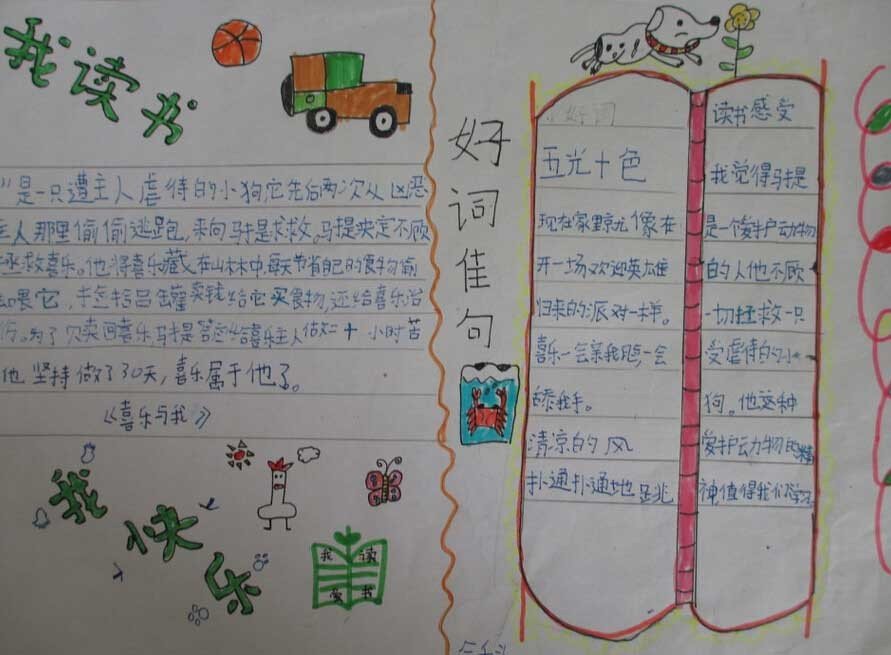 我读书
》是一只遭主人虐待的小狗它先后两次从凶恶
主人那里偷偷逃跑，来向马提求救。马提决定不顾
拯救喜乐。他将喜乐藏在山林中，每天节省自己的食物偷
喂它，捡指吕缶罐卖钱给它买食物，还给喜乐治
伤。为了买回喜乐，马提答应给喜乐主人做二十小时苦
他坚持做了30天，喜乐属于他了。
《喜乐与我》
我快乐
我读
爱书
好词佳句
好词
五光十色
现在家里就像在
开一场欢迎英雄
归来的派对一样。
喜乐一会亲我，一会
舔我手。
清凉的风
扑通扑通地跳
读书感受
我觉得马提
是一个爱护动物
的人他不顾
一切拯救一只
受虐待的小
狗。他这种
爱护动物的精
神值得我们学习